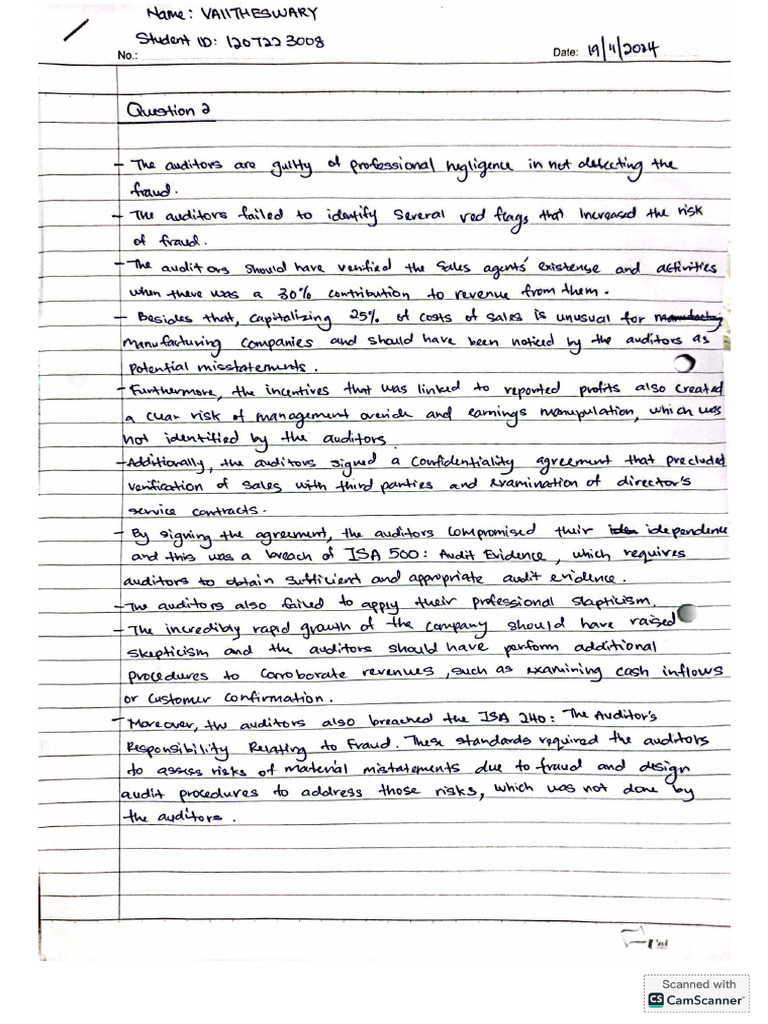 Name: VAIITHESWARY
Student ID: 1207223008
No.:
Date: 19/11/2024
Question 2
- The auditors are guilty of professional negligence in not detecting the
fraud.
- The auditors failed to identify several red flags that increased the risk
of fraud.
- The auditors should have verified the sales agents' existense and activities
when there was a 30% contribution to revenue from them.
- Besides that, capitalizing 25% of costs of sales is unusual for
manufacturing companies and should have been noticed by the auditors as
potential misstatements.
- Furthermore, the incentives that was linked to reported profits also created
a clear risk of management override and earnings manupulation, which was
not identified by the auditors.
- Additionally, the auditors signed a confidentiality agreement that precluded
verification of sales with third parties and examination of director's
service contracts.
- By signing the agreement, the auditors compromised their idependence
and this was a breach of ISA 500: Audit Evidence, which requires
auditors to obtain sufficient and appropriate audit evidence.
- The auditors also failed to apply their professional skapticism.
- The incredibly rapid growth of the company should have raised
skepticism and the auditors should have perform additional
procedures to corroborate revenues, such as examining cash inflows
or customer confirmation.
- Moreover, the auditors also breached the ISA 240: The Auditor's
Responsibility Relating to Fraud. These standards required the auditors
to assess risks of material mistatements due to fraud and design
audit procedures to address those risks, which was not done by
the auditors.
Uni
Scanned with
CS CamScanner